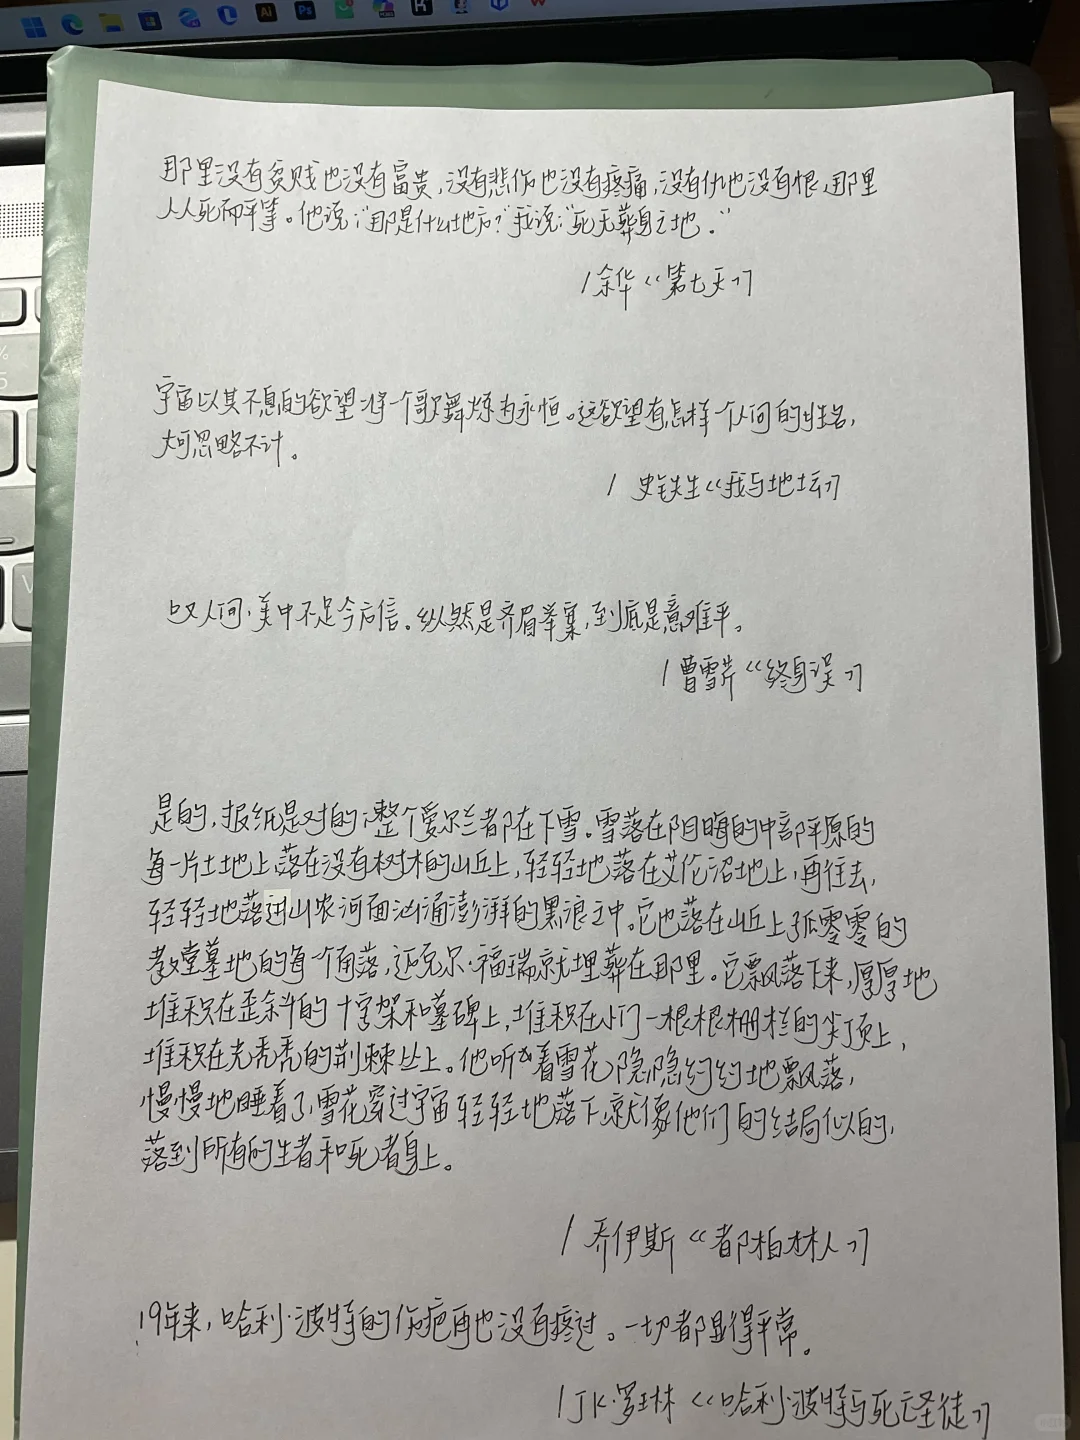 那里没有贫贱也没有富贵,没有悲伤也没有疼痛,没有仇也没有恨,那里
人人死而平等。他说:"那是什么地方?"我说:"死无葬身之地."
/余华《第七天》
宇宙以其不息的欲望将一个歌舞炼为永恒。这欲望有怎样一个人间的姓名,
大可忽略不计。
/ 史铁生《我与地坛》
叹人间,美中不足今方信。纵然是齐眉举案,到底是意难平。
/曹雪芹《终身误》
是的,报纸是对的;整个爱尔兰都在下雪。雪落在阴晦的中部平原的
每一片土地上,落在没有树木的山丘上,轻轻地落在艾伦沼地上,再往去,
轻轻地落进山农河面汹涌澎湃的黑浪之中。它也落在山丘上孤零零的
教堂墓地的每一个角落,迈克尔·福瑞就埋葬在那里。它飘落下来,厚厚地
堆积在歪斜的十字架和墓碑上,堆积在小门一根根栅栏的尖顶上,
堆积在光秃秃的荆棘丛上。他听着雪花隐隐约约地飘落,
慢慢地睡着了,雪花穿过宇宙轻轻地落下,就像他们的结局似的,
落到所有的生者和死者身上。
/ 乔伊斯《都柏林人》
19年来,哈利·波特的伤疤再也没有疼过。一切都显得平常。
/JK·罗琳《哈利·波特与死亡圣徒》